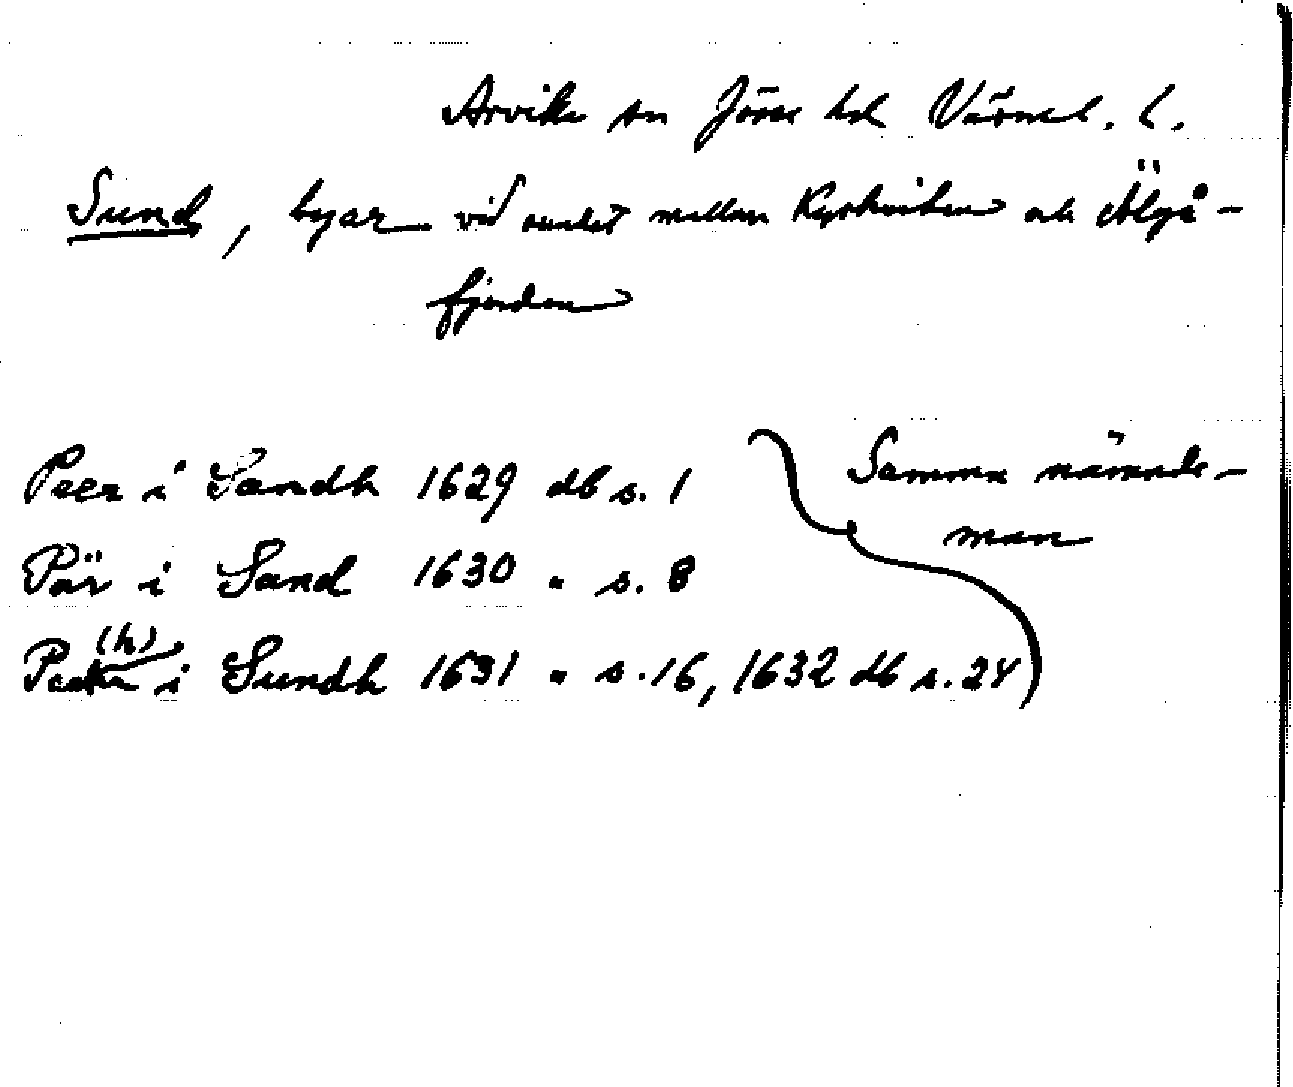 Arvika sn Jösse hd Värml. l.
Sund, byar vid sundet mellan Kyrkviken och Älgå-
fjorden
Peer i Sandh 1629 db s. 1
Samma nämnde-
man
Pär i Sand 1630 " s. 8
(h)
Peeter i Sundh 1631 " s. 16, 1632 db s. 24